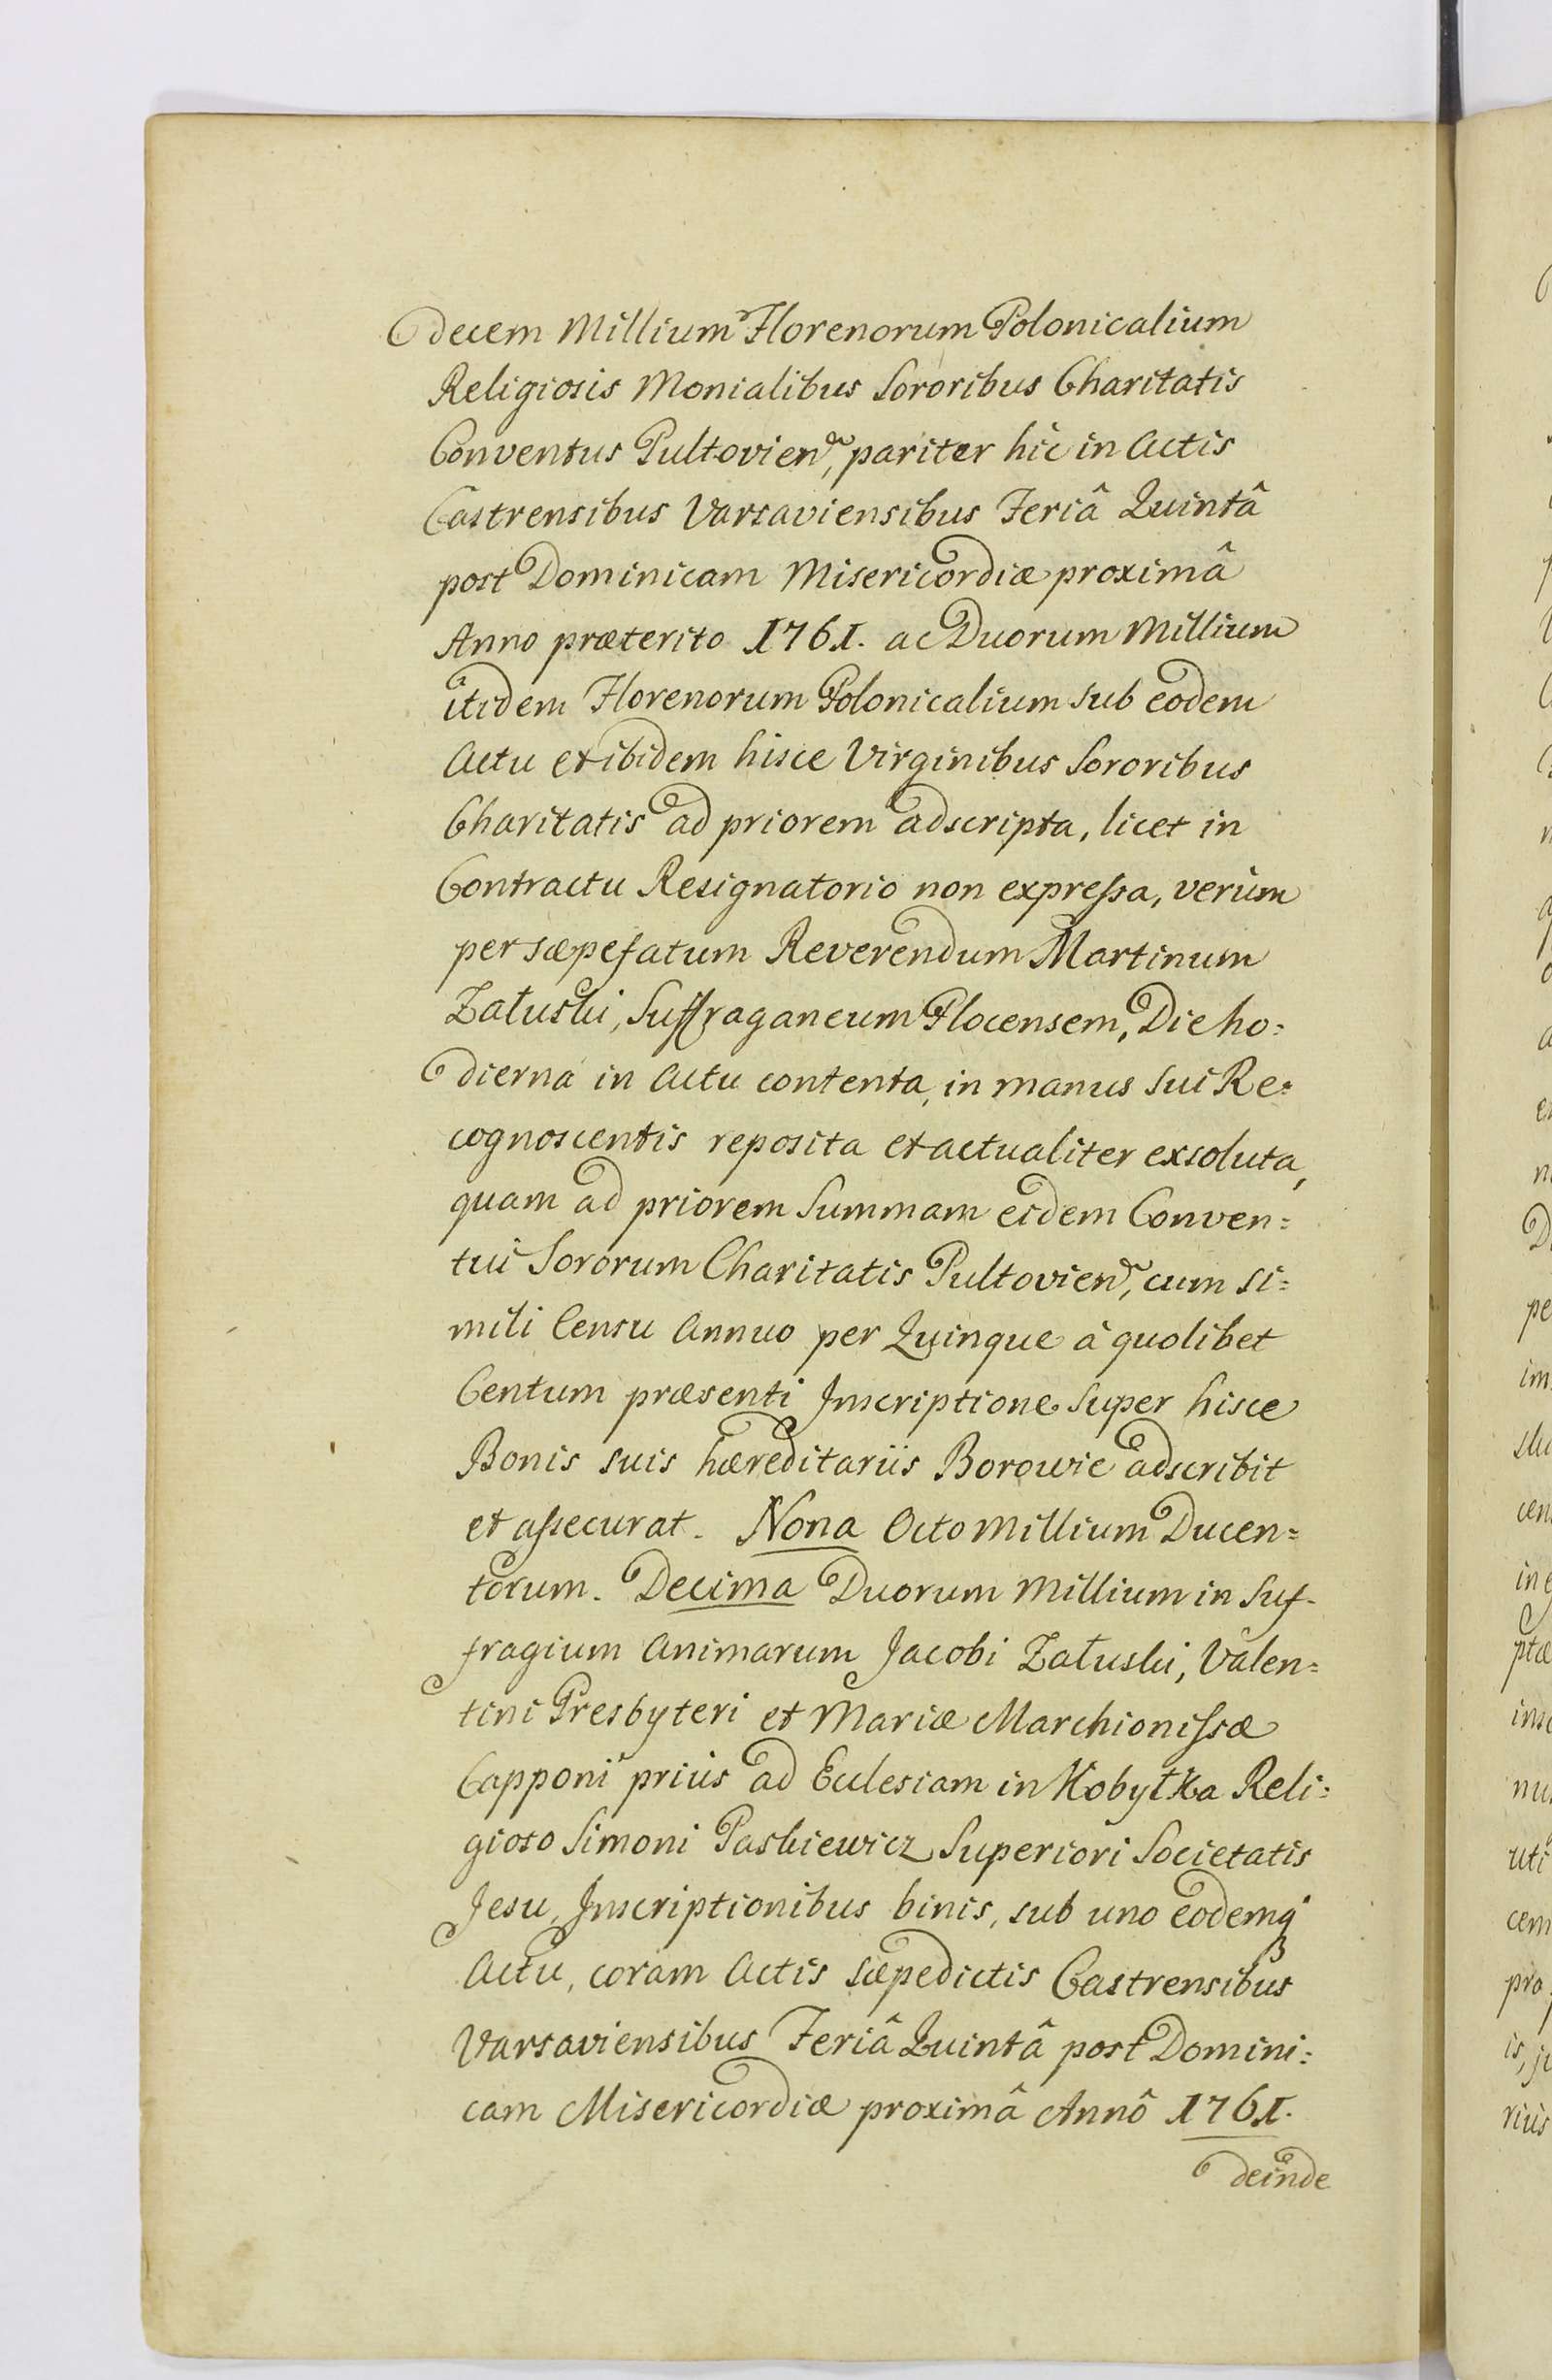 decem Millium Florenorum Polonicalium
Religiosis Monialibus Sororibus Charitatis
Conventus Pultovien, pariter hic in Actis
Castrensibus Varsaviensibus Feriâ Quintâ
post Dominicam Misericordiæ proximâ
Anno præterito 1761. ac Duorum Millium
itidem Florenorum Polonicalium sub eodem
Actu et ibidem hisce Virginibus Sororibus
Charitatis ad priorem adscripta, licet in
Contractu Resignatorio non expressa, verùm
per sæpefatum Reverendum Martinum
Załuski, Suffraganeum Plocensem, Die ho=
dierna in Actu contenta, in manus sui Re=
cognoscentis reposita et actualiter exsoluta,
quam ad priorem Summam eidem Conven=
tui Sororum Charitatis Pultovien, cum si=
mili Censu Annuo per Quinque à quolibet
Centum præsenti Inscriptione super hisce
Bonis suis hæreditariis Borowie adscribit
et assecurat. Nona Octo Millium Ducen=
torum. Decima Duorum Millium in Suf-
fragium Animarum Jacobi Załuski, Valen=
tini Presbyteri et Mariæ Marchionissæ
Capponi priùs ad Ecclesiam in Kobyłka Reli=
gioso Simoni Paskiewicz Superiori Societatis
Jesu, Inscriptionibus binis, sub uno eodemq
Actu, coram Actis sæpedictis Castrensibus
Varsaviensibus Feriâ Quintâ post Domini=
cam Misericordiæ proximâ Annô 1761.
deinde